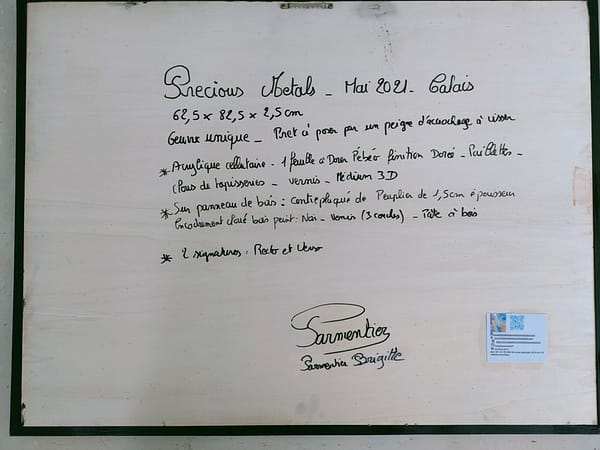 Precious Metals - Mai 2021 - Calais
62,5 x 82,5 x 2,5 cm
Oeuvre unique - Pret à poser par un peigne d'accrochage à visser
* Acrylique cellulaire - 1 feuille à Dorer Pébéo finition Dorée - Paillettes -
Clous de tapisseries - vernis - Médium 3D
* Sur panneau de bois : contreplaqué de Peuplier de 1,5cm épaisseur
Encadrement cloué bois peint : Noir - Vernis (3 couches) - Pâte à bois
* 2 signatures : Recto et Verso
Parmentier
Parmentier Brigitte